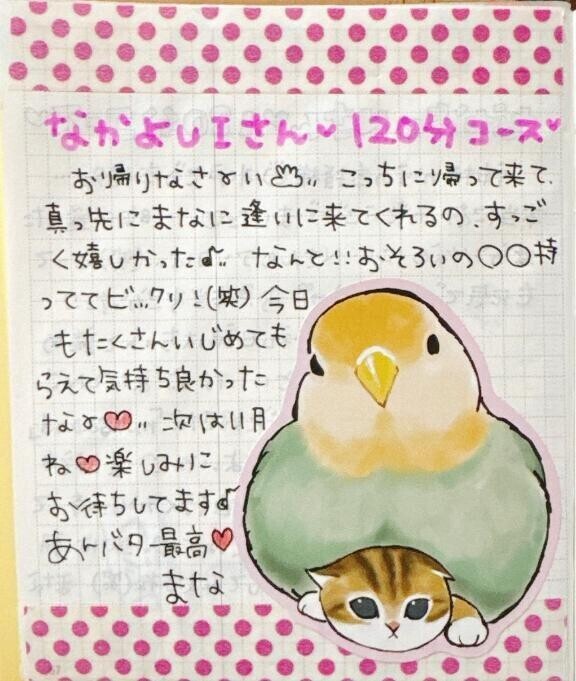 なかよしIさん♥120分コース♥
お帰りなさーい!! こっちに帰って来て、
真っ先にまなに逢いに来てくれるの、すっご
く嬉しかった♪!! なんと!!おそろいの〇〇持
っててビックリ!(笑) 今日
もたくさんいじめても
らえて気持ち良かった
なー♥!! 次は11月
ね♥楽しみに
お待ちしてます♪
あんバタ最高♥
まな